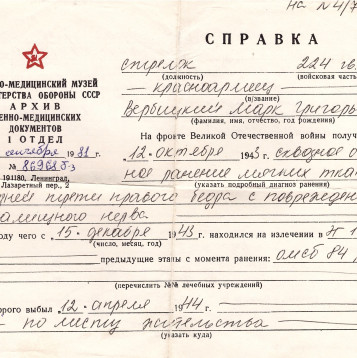 на № 4/7
СПРАВКА
О-МЕДИЦИНСКИЙ МУЗЕЙ
ТЕРСТВА ОБОРОНЫ СССР
АРХИВ
ЕННО-МЕДИЦИНСКИХ
ДОКУМЕНТОВ
I ОТДЕЛ
сентября 1981 г.
№
191180, Ленинград,
Лазаретный пер., 2
стрелок 224 гв.
(должность) (войсковая часть
— красноармеец
(в/звание)
Вербицкий Марк Григорь
(фамилия, имя, отчество, год рождения)
На фронте Великой Отечественной войны получ
12 · октября 1943 сквозное о
ное ранение мягких ткан
(указать подробный диагноз ранения
ней трети правого бедра с поврежден
алищного нерва
оду чего с 15 · декабря 1943 находился на излечении в
(число, месяц, год)
предыдущие этапы с момента ранения: омсб 84
(перечислить №№ лечебных учреждений)
орого выбыл 12 · апреля 1944 г.
— по месту жительства
(указать куда)